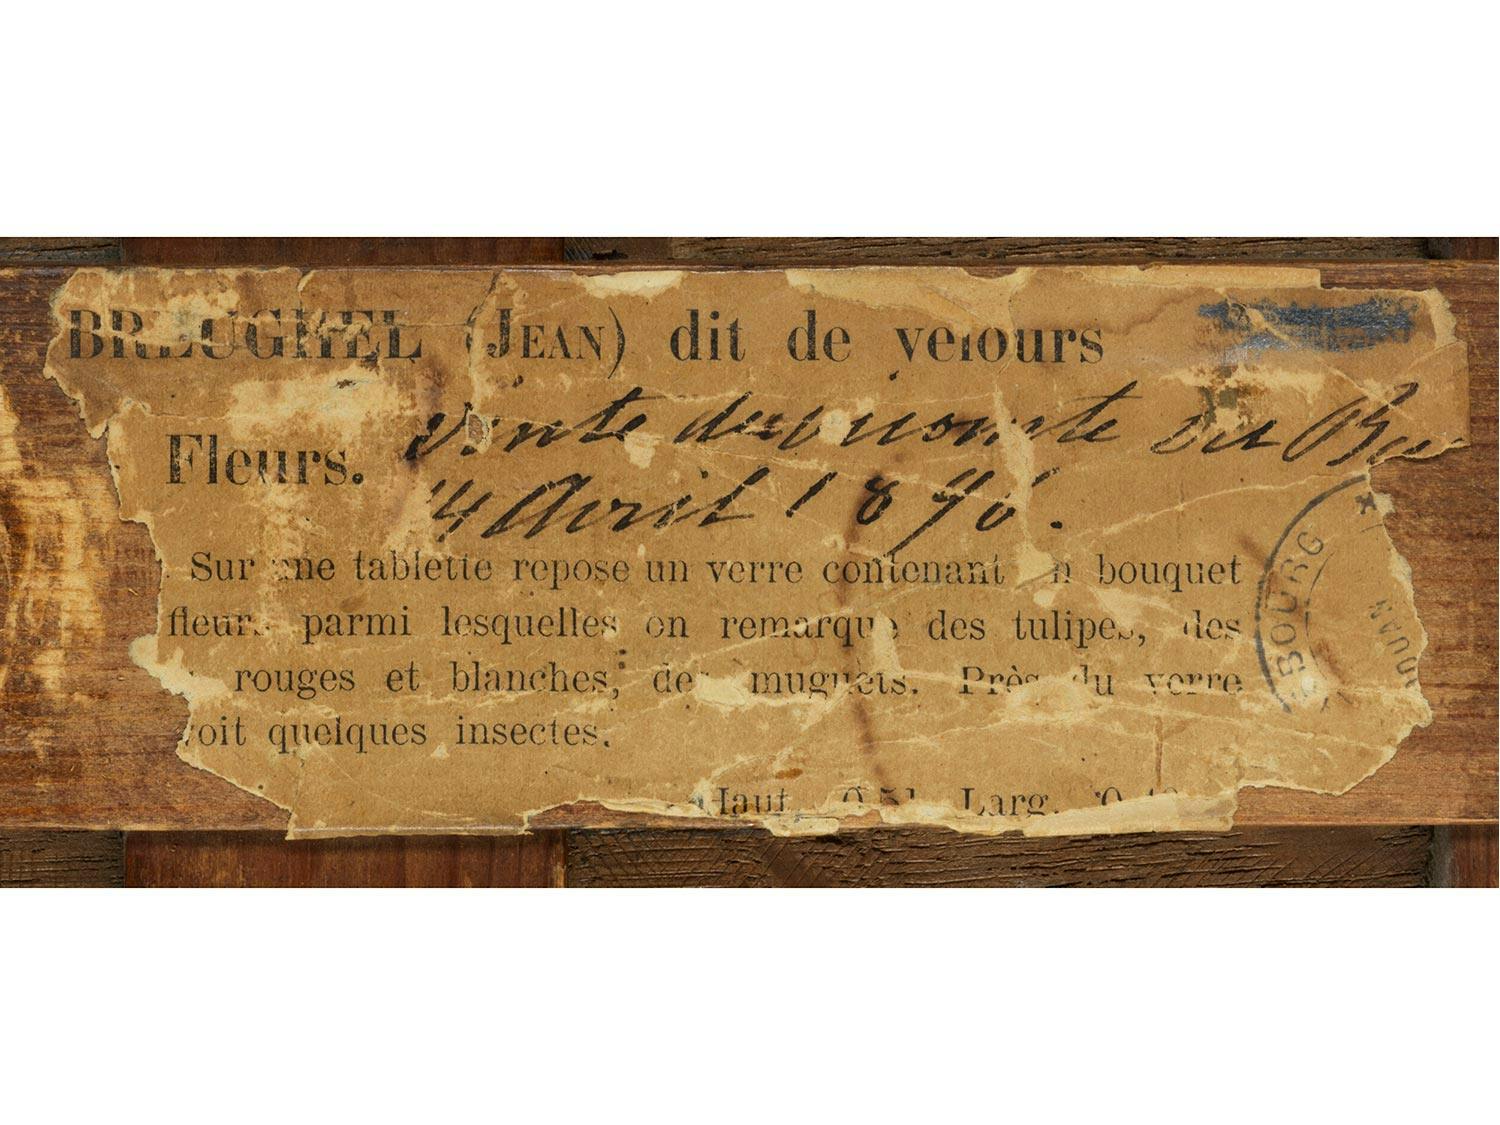 BREUGHEL (JEAN) dit de velours
Fleurs.
Vente du vicomte du Bu
4 Avril 1896.
Sur une tablette repose un verre contenant n bouquet
fleurs parmi lesquelles on remarque des tulipes, des
rouges et blanches, des muguets. Près du verre
voit quelques insectes.
Haut. 0.51 Larg.
BOURG